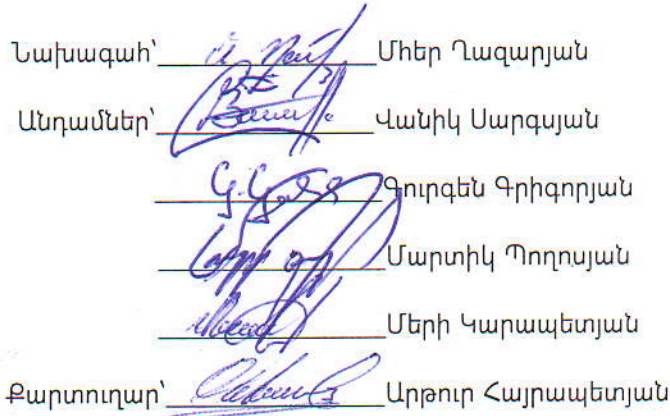 Նախագահ՝ Մհեր Ղազարյան
Անդամներ՝ Վանիկ Սարգսյան
Գուրգեն Գրիգորյան
Մարտիկ Պողոսյան
Մերի Կարապետյան
Քարտուղար՝ Արթուր Հայրապետյան